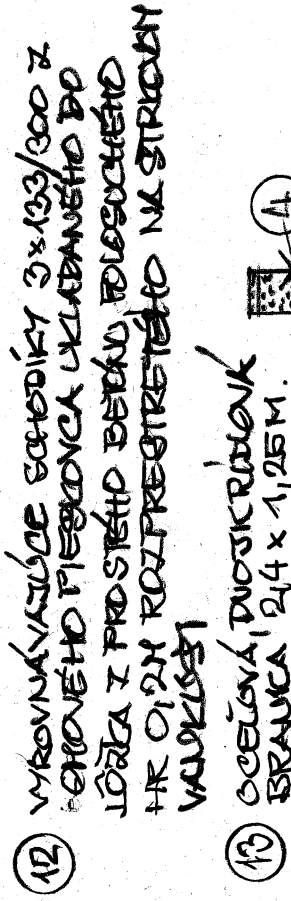 12 VYROVNÁVAJÚCE SCHODÍKY 3×133/300 Z
OHOVÉHO PIESKOVCA UKLADANÉHO DO
LÔŽKA Z PROSTÉHO BETÓNU POLOSUCHÉHO
HR 0,2M ROZPRESTRETÉHO NA ŠTRKOVOM
13 OCEĽOVÁ, DVOJKRÍDLOVÁ
BRÁNKA 2,4 × 1,25 M.
A